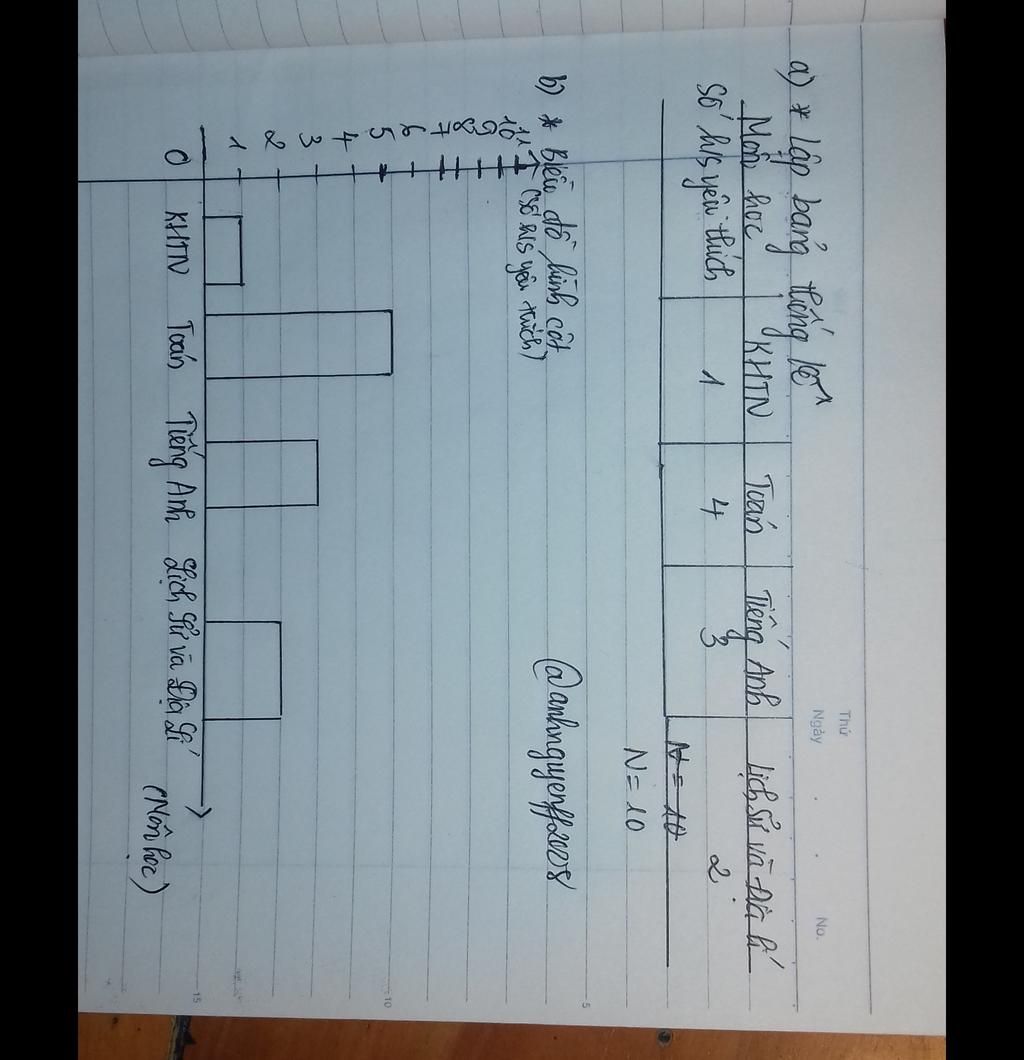 Thứ
Ngày . . No.
a) * Lập bảng thống kê
Môn học KHTN Toán Tiếng Anh Lịch Sử và Địa lí
Số h/s yêu thích 1 4 3 2
N = 10
N = 10
b) * Biểu đồ hình cột @anhnguyenff2008
(Số h/s yêu thích)
11
10
9
8
7
6
5
4
3
2
1
0
KHTN Toán Tiếng Anh Lịch Sử và Địa Lí (Môn học)
5
10
15